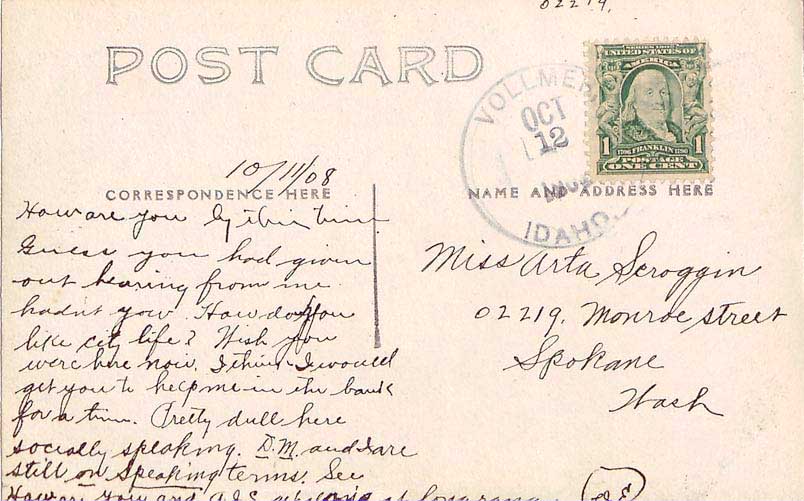 02219.
POST CARD
SERIES 1902
UNITED STATES OF
AMERICA
1 1706 FRANKLIN 1790 1
POSTAGE
ONE CENT
VOLLMER
OCT
12
IDAHO.
10/11/08
CORRESPONDENCE HERE
NAME AND ADDRESS HERE
How are you by this time
Guess you had given
out hearing from me
hadn't you. How do you
like city life? Wish you
were here now. I think I would
get you to help me in the bank
for a time. Pretty dull here
socially speaking. D.M. and I are
still on speaking terms. See
How are you and
Miss Arta Scroggin
02219. Monroe street
Spokane
Wash